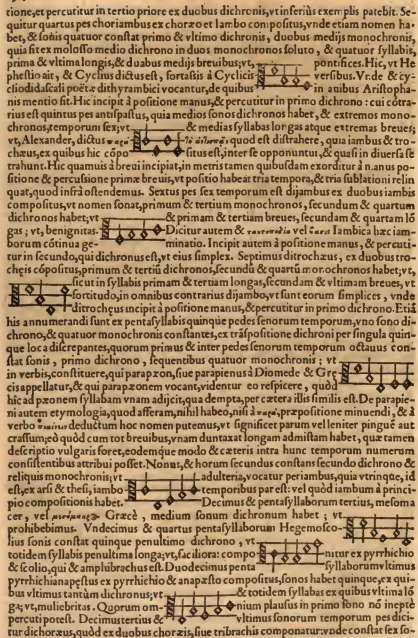 tione, et percutitur in tertio priore ex duobus dichronis, vt in feriùs exemplis patebit. Se-
quitur quartus pes choriambus ex choræo et Iambo compositus, vnde etiam nomen ha-
bet, & sonis quatuor constat primo & vltimo dichronis, duobus medijs monochronis,
quia sit ex molosso medio dichrono in duos monochronos soluto, & quatuor syllabis,
prima & vltima longis, & duabus medijs breuibus; vt, pontifices. Hic, vt He
phestio ait, & Cyclius dictus est, fortassis à Cyclicis versibus. Vnde & cy-
cliodidascali poëtæ dithyrambici vocantur, de quibus in auibus Aristopha-
nis mentio sit. Hic incipit à positione manus, & percutitur in primo dichrono: cui côtra-
rius est quintus pes antispastus, quia medios sonos dichronos habet, & extremos mono-
chronos, temporum sex; vt & medias syllabas longas atque extremas breues,
vt, Alexander, dictus quod est distrahere, quia iambus & tro-
chæus, ex quibus hic cópo situs est, inter se opponuntur, & quasi in diuersa se
trahunt. Hic quamuis à breui incipiat, in metris tamen quibusdam exorditur à manus po
sitione & percusione primæ breuis, vt positio habeat tria tempora, & tria sublatio: relin
quat, quod infrà ostendemus. Sextus pes sex temporum est dijambus ex duobus iambis
compositus, vt nomen sonat, primum & tertium monochronos, secundum & quartum
dichronos habet; vt & primam & tertiam breues, secundam & quartam ló
gas; vt, benignitas. Dicitur autem & vel Iambica hæc iam-
borum côtinua ge- minatio. Incipit autem à positione manus, & percuti-
tur in secundo, qui dichronus est, vt eius simplex. Septimus ditrochæus, ex duobus tro-
chęis cópositus, primum & tertiû dichronos, secundû & quartû monochronos habet; vt,
sicut in syllabis primam & tertiam longas, secundam & vltimam breues, vt
fortitudo, in omnibus contrarius dijambo, vt sunt eorum simplices, vnde
ditrochęus incipit à positione manus, & percutitur in primo dichrono. Etiá
his annumerandi sunt ex pentasyllabis quinque pedes senorum temporum, vno sono di-
chrono, & quatuor monochronis constantes, ex träspositione dichroni per singula quin-
que loca discrepantes, quorum primus & inter pedes senorum temporum octauus con-
stat sonis, primo dichrono, sequentibus quatuor monochronis; vt
in verbis, constituere, qui parapæon, siue parapienus à Diomede & Gre
cis appellatur, & qui parapæonem vocant, videntur eo respicere, quòd
hic ad pæonem syllabam vnam adijcit, qua dempta, per cætera illi similis est. De parapie-
ni autem etymologia, quod afferam, nihil habeo, nisi à præpositione minuendi, & à
verbo deductum hoc nomen putemus, vt significet parum vel leniter pinguē aut
crassum; eò quòd cum tot breuibus, vnam duntaxat longam admistam habet, quæ tamen
descriptio vulgaris foret, eodemque modo & cæteris intra hunc temporum numerum
consistentibus attribui posset. Nonus, & horum secundus constans secundo dichrono &
reliquis monochronis; vt adulteria, vocatur periambus, quia vtrinque, id
est, ex arsi & thesi, iambo temporibus par est: vel quòd iambum à princi-
pio compositionis habet. Decimus & pentasyllaborum tertius, mesoma
cer, vel Græcè, medium sonum dichronum habet; vt
prohibebimus. Vndecimus & quartus pentasyllaborum Hegemosco-
lius sonis constat quinque penultimo dichrono, vt
totidem syllabis penultima longa; vt, faciliora: compo nitur ex pyrrhichio
& scolio, qui & amphibrachus est. Duodecimus penta syllaborum vltimus
pyrrhichianapęstus ex pyrrhichio & anapæsto compositus, sonos habet quinque, ex qui-
bus vltimus tantùm dichronus; vt & totidem syllabas ex quibus vltima ló
ga; vt, muliebritas. Quorum om- nium plausus in primo sono nó inepté
percuti potest. Decimustertius & vltimus sonorum temporum pes dici-
tur choræus, quòd ex duobus choræis, siue tribrachis componatur, vnde constat sex so-